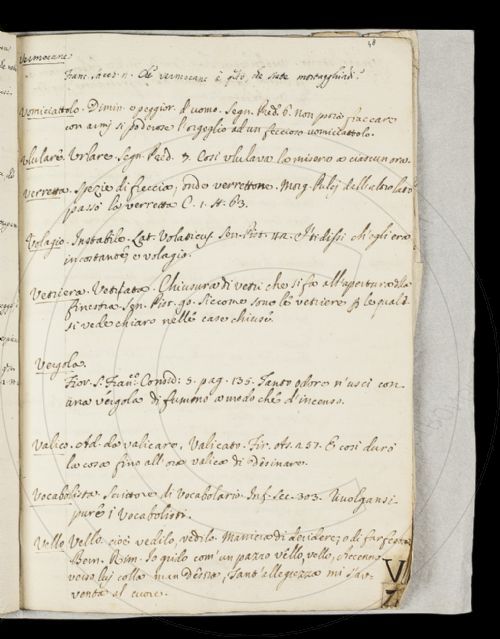 48
Vermocane
Franc. Sacch. n. Che vermocane è questo, che siate
Vomiciattolo. Dimin. e peggior. d'uomo. Segn. Pred. 6. non potrà fiaccare
con armi sì poderose l'orgoglio ad un feccioso uomiciattolo.
Ululare. Urlare. Segn. Pred. 7. Così ululava lo misero a ciascun ora.
Verretta. Spezie di freccia, onde verrettone. Morg. Pulcj dell'altro lato
passò la verretta C. 1. St. 63.
Volagio. Instabile. Lat. Volaticus. Sen. Pist. I ti dissi ch'egli era
incostante e volagio.
Vetriera. Vetriata. Chiusura di vetri che si fa all'apertura della
finestra Sen. Pist. 90. Siccome sono le vetriere p le quali
si vede chiaro nelle case chiuse.
Vergola.
Fior. S. Fran.co Consid: 5. pag. 135. Tanto odore n'uscì con
una vergola di fummo a modo che d'incenso.
Valico. Ad. da valicare, Valicato. Fir. As. 257. E così durò
la cosa fino all'ora valica di Desinare.
Vocabolista. Scrittore di Vocabolario. Inf. Sec. 303. Rivolgansi
pure i Vocabolisti.
Vello Vello. cioè vedilo, vedilo. Maniera di deridere, o di far festa
Bern. Rim. Io grido com'un pazzo vello, vello, Accenno
verso lui colla man destra, Tant'allegrezza mi s'av-
venta al cuore.
V
Z